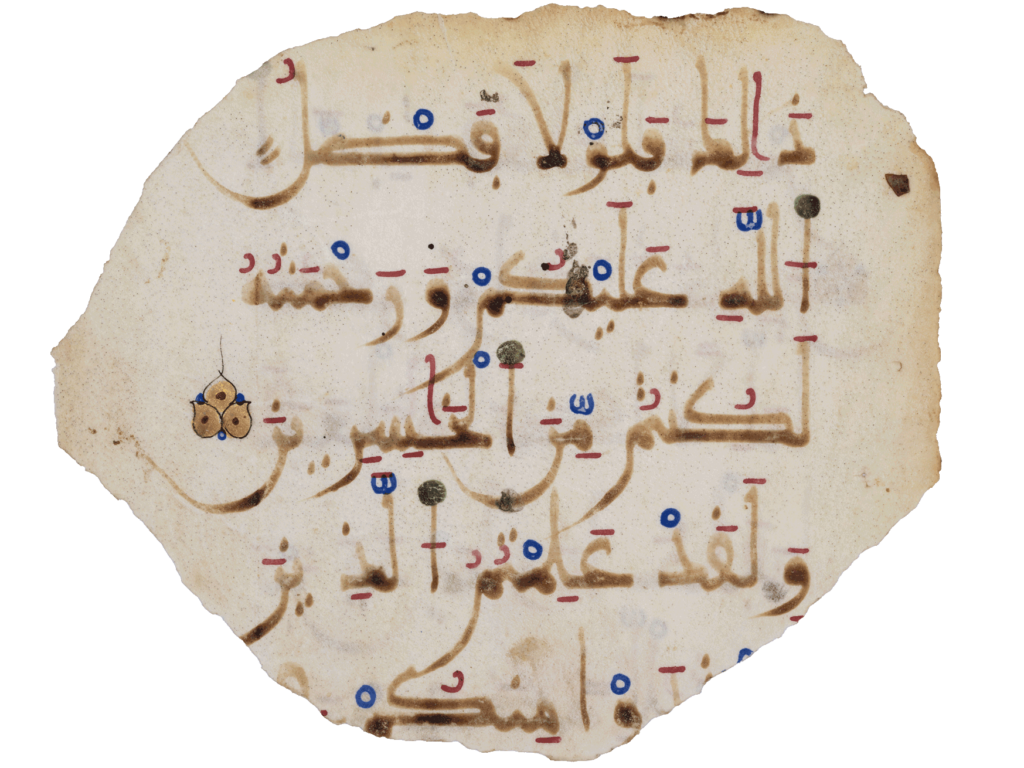 ذَٰلِكَ فَلَوْلَا فَضْلُ
اللَّهِ عَلَيْكُمْ وَرَحْمَتُهُ
لَكُنْتُمْ مِّنَ الْخَٰسِرِينَ
وَلَقَدْ عَلِمْتُمُ الَّذِينَ
اعْتَدَوْا مِنكُمْ